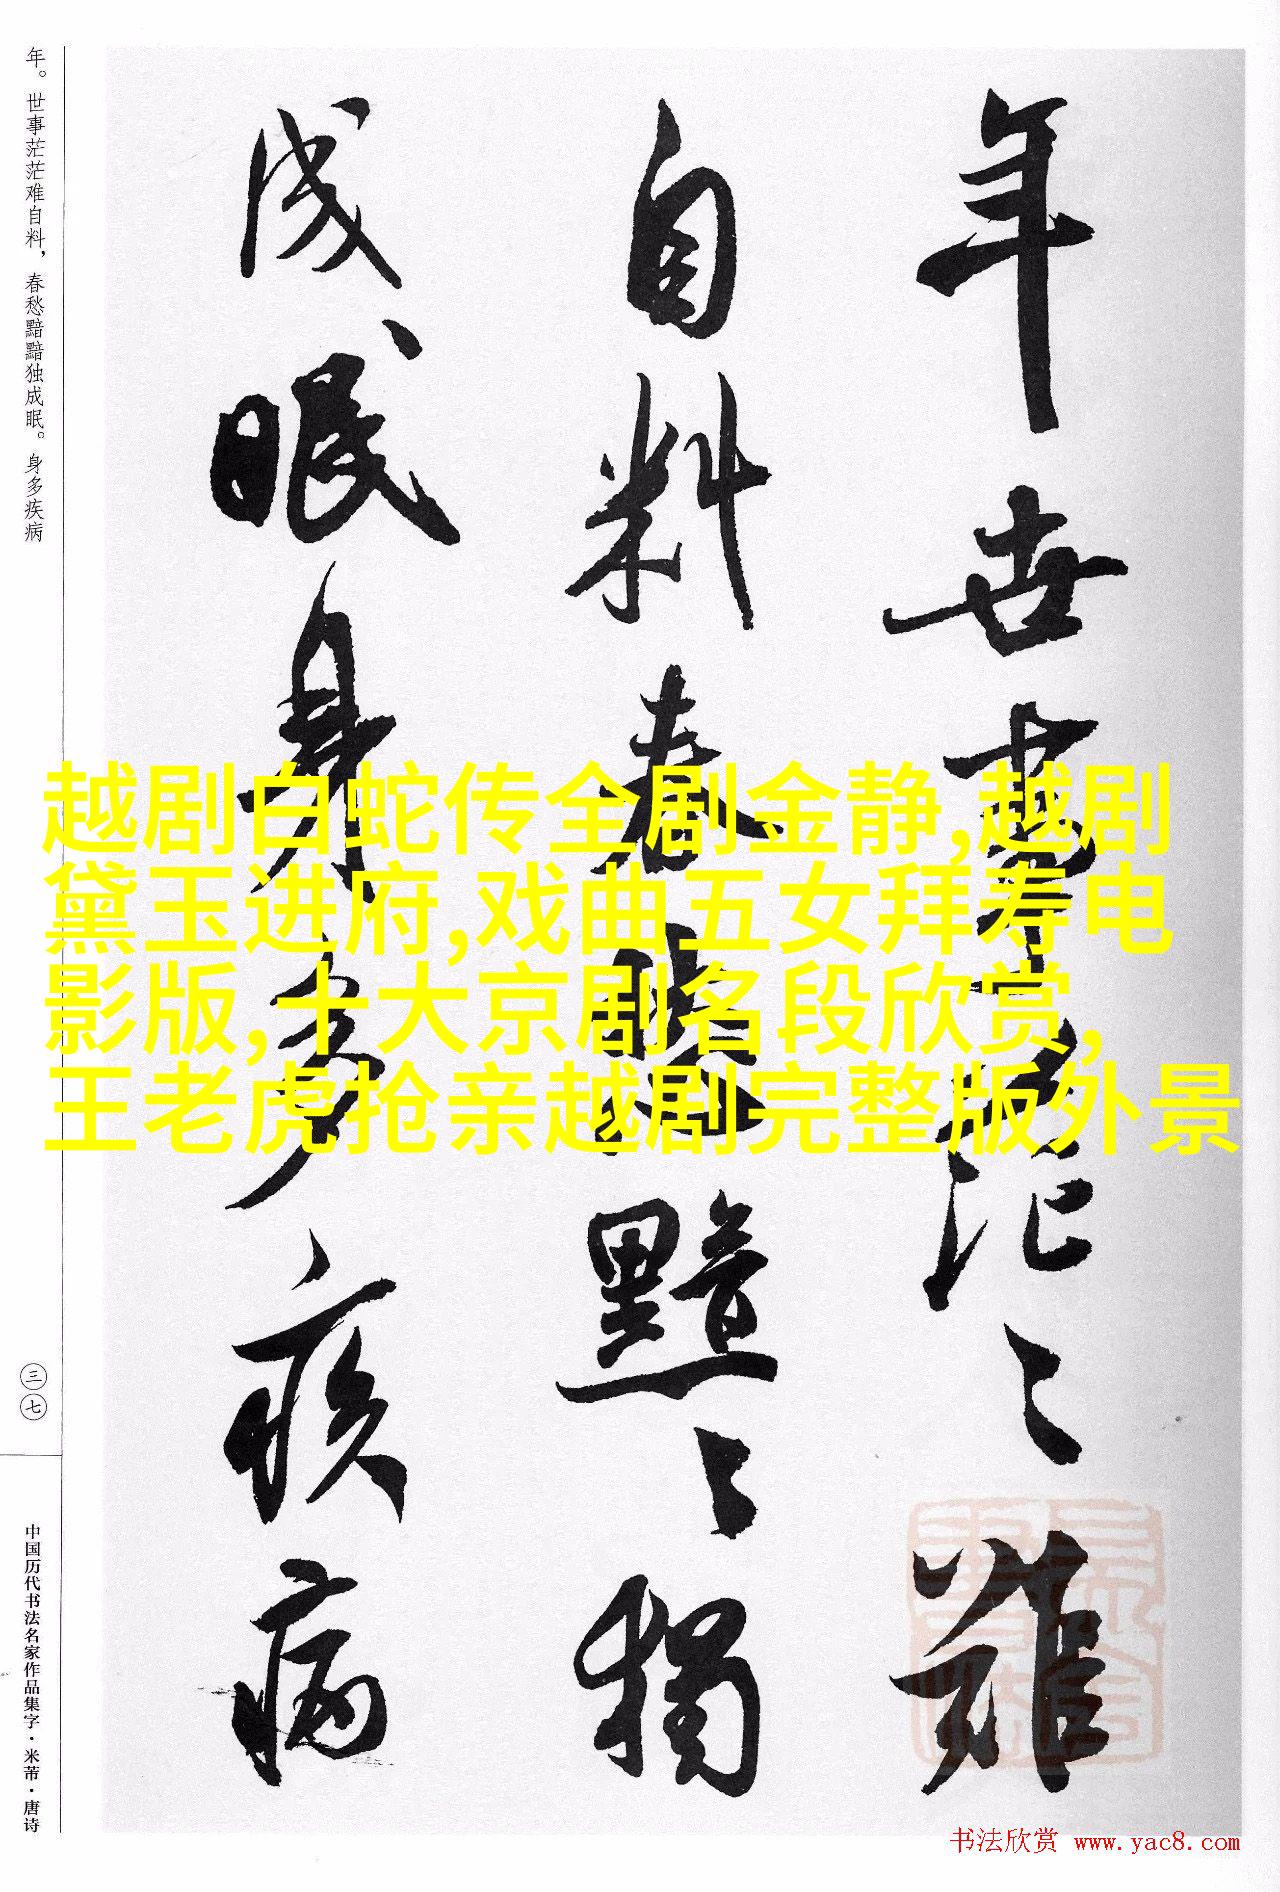 年世事茫〻難
自料春愁黯〻獨
成眠身多疾病
年。世事茫茫难自料，春愁黯黯独成眠。身多疾病
三七
中国历代书法名家作品集字·米芾·唐诗
越剧白蛇传全剧金静,越剧
黛玉进府,戏曲五女拜寿电
影版,十大京剧名段欣赏,
王老虎抢亲越剧完整版外景
书法欣赏 www.yac8.com